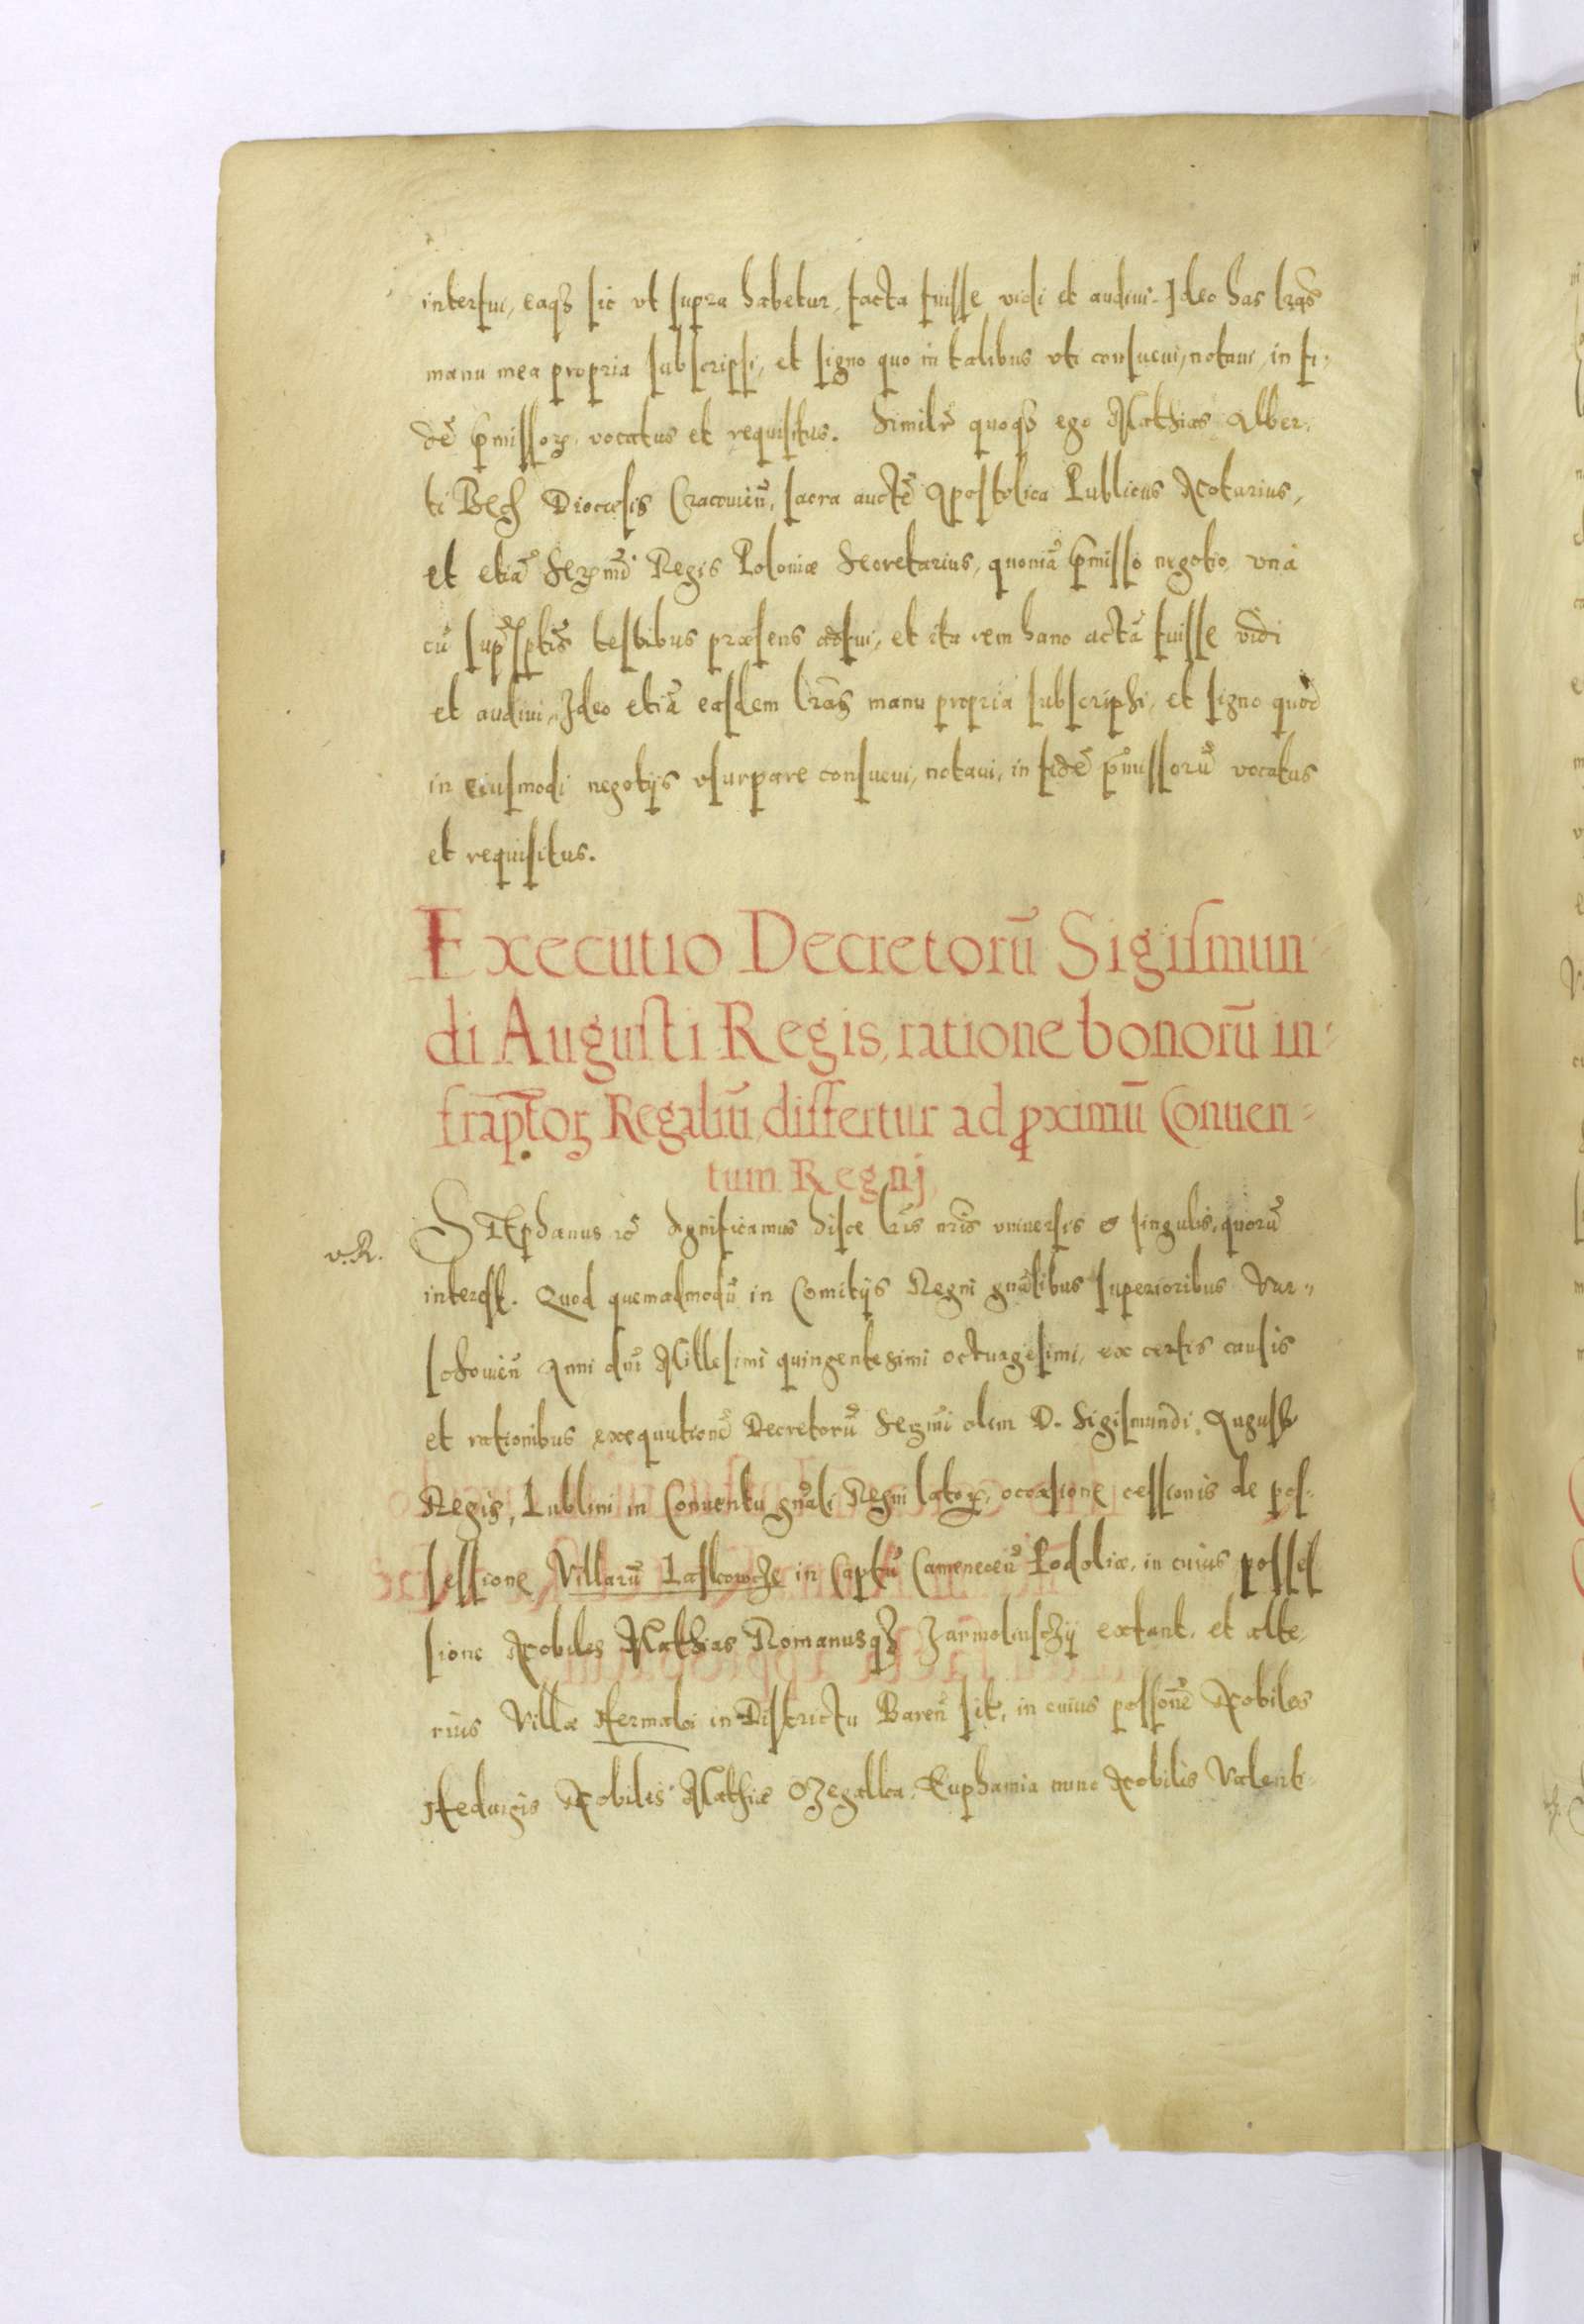 interfui, eaqȝ sic vt supra habetur, facta fuisse vidi et audiui. Ideo has lr̃as
manu mea propria subscripsi, et signo quo in talibus vti consueui, notaui, in fi-
dē p̄missoꝝ, vocatus et requisitus. Similr̃ quoqȝ ego Mathias Alber-
ti Diocesis Cracouieñ, sacra auctē Apostolica Publicus Notarius,
et etiā Serm̄i Regis Poloniæ Secretarius, quoniā p̄misso negotio, vna
cū testibus præsens adfui, et ita rem hanc actā fuisse vidi
et audiui, Ideo etiā easdem lr̃as manu propria subscripsi, et signo quod
in eiusmodi negotijs vsurpare consueui, notaui, in fidē p̄missorū vocatus
et requisitus.
Executio Decretorū Sigismun-
di Augusti Regis, ratione bonorū in-
frap̄toꝝ Regaliū, differtur ad ꝓximū Conuen-
tum Regnj,
v. R.
STEphanus rc̄ Significamus hisce lr̃is nr̃is vniuersis & singulis, quorū
interest. Quod quemadmodū in Comitijs Regni gn̄alibus superioribus Var-
schouieñ Anni dn̄i Millesimi quingentesimi octuagesimi, ex certis causis
et rationibus exequutionē Decretorū Serm̄i olim D. Sigismundi Augusti
Regis, Lublini in Conuentu gn̄ali Regni latoꝝ, occasione cessionis de pos-
sessione Villarū Laskowcze in Cap̄tū Cameneceñ Podoliæ, in cuius posses-
sione Nobiles Mathias Romanusqȝ Jarmolinschij extant, et alte-
rius Villæ Hermaki in Districtu Bareñ sit, in cuius possonē Nobiles
Heduigis Nobilis Mathiæ Ozegalka, Euphamia nunc Nobilis Valent-